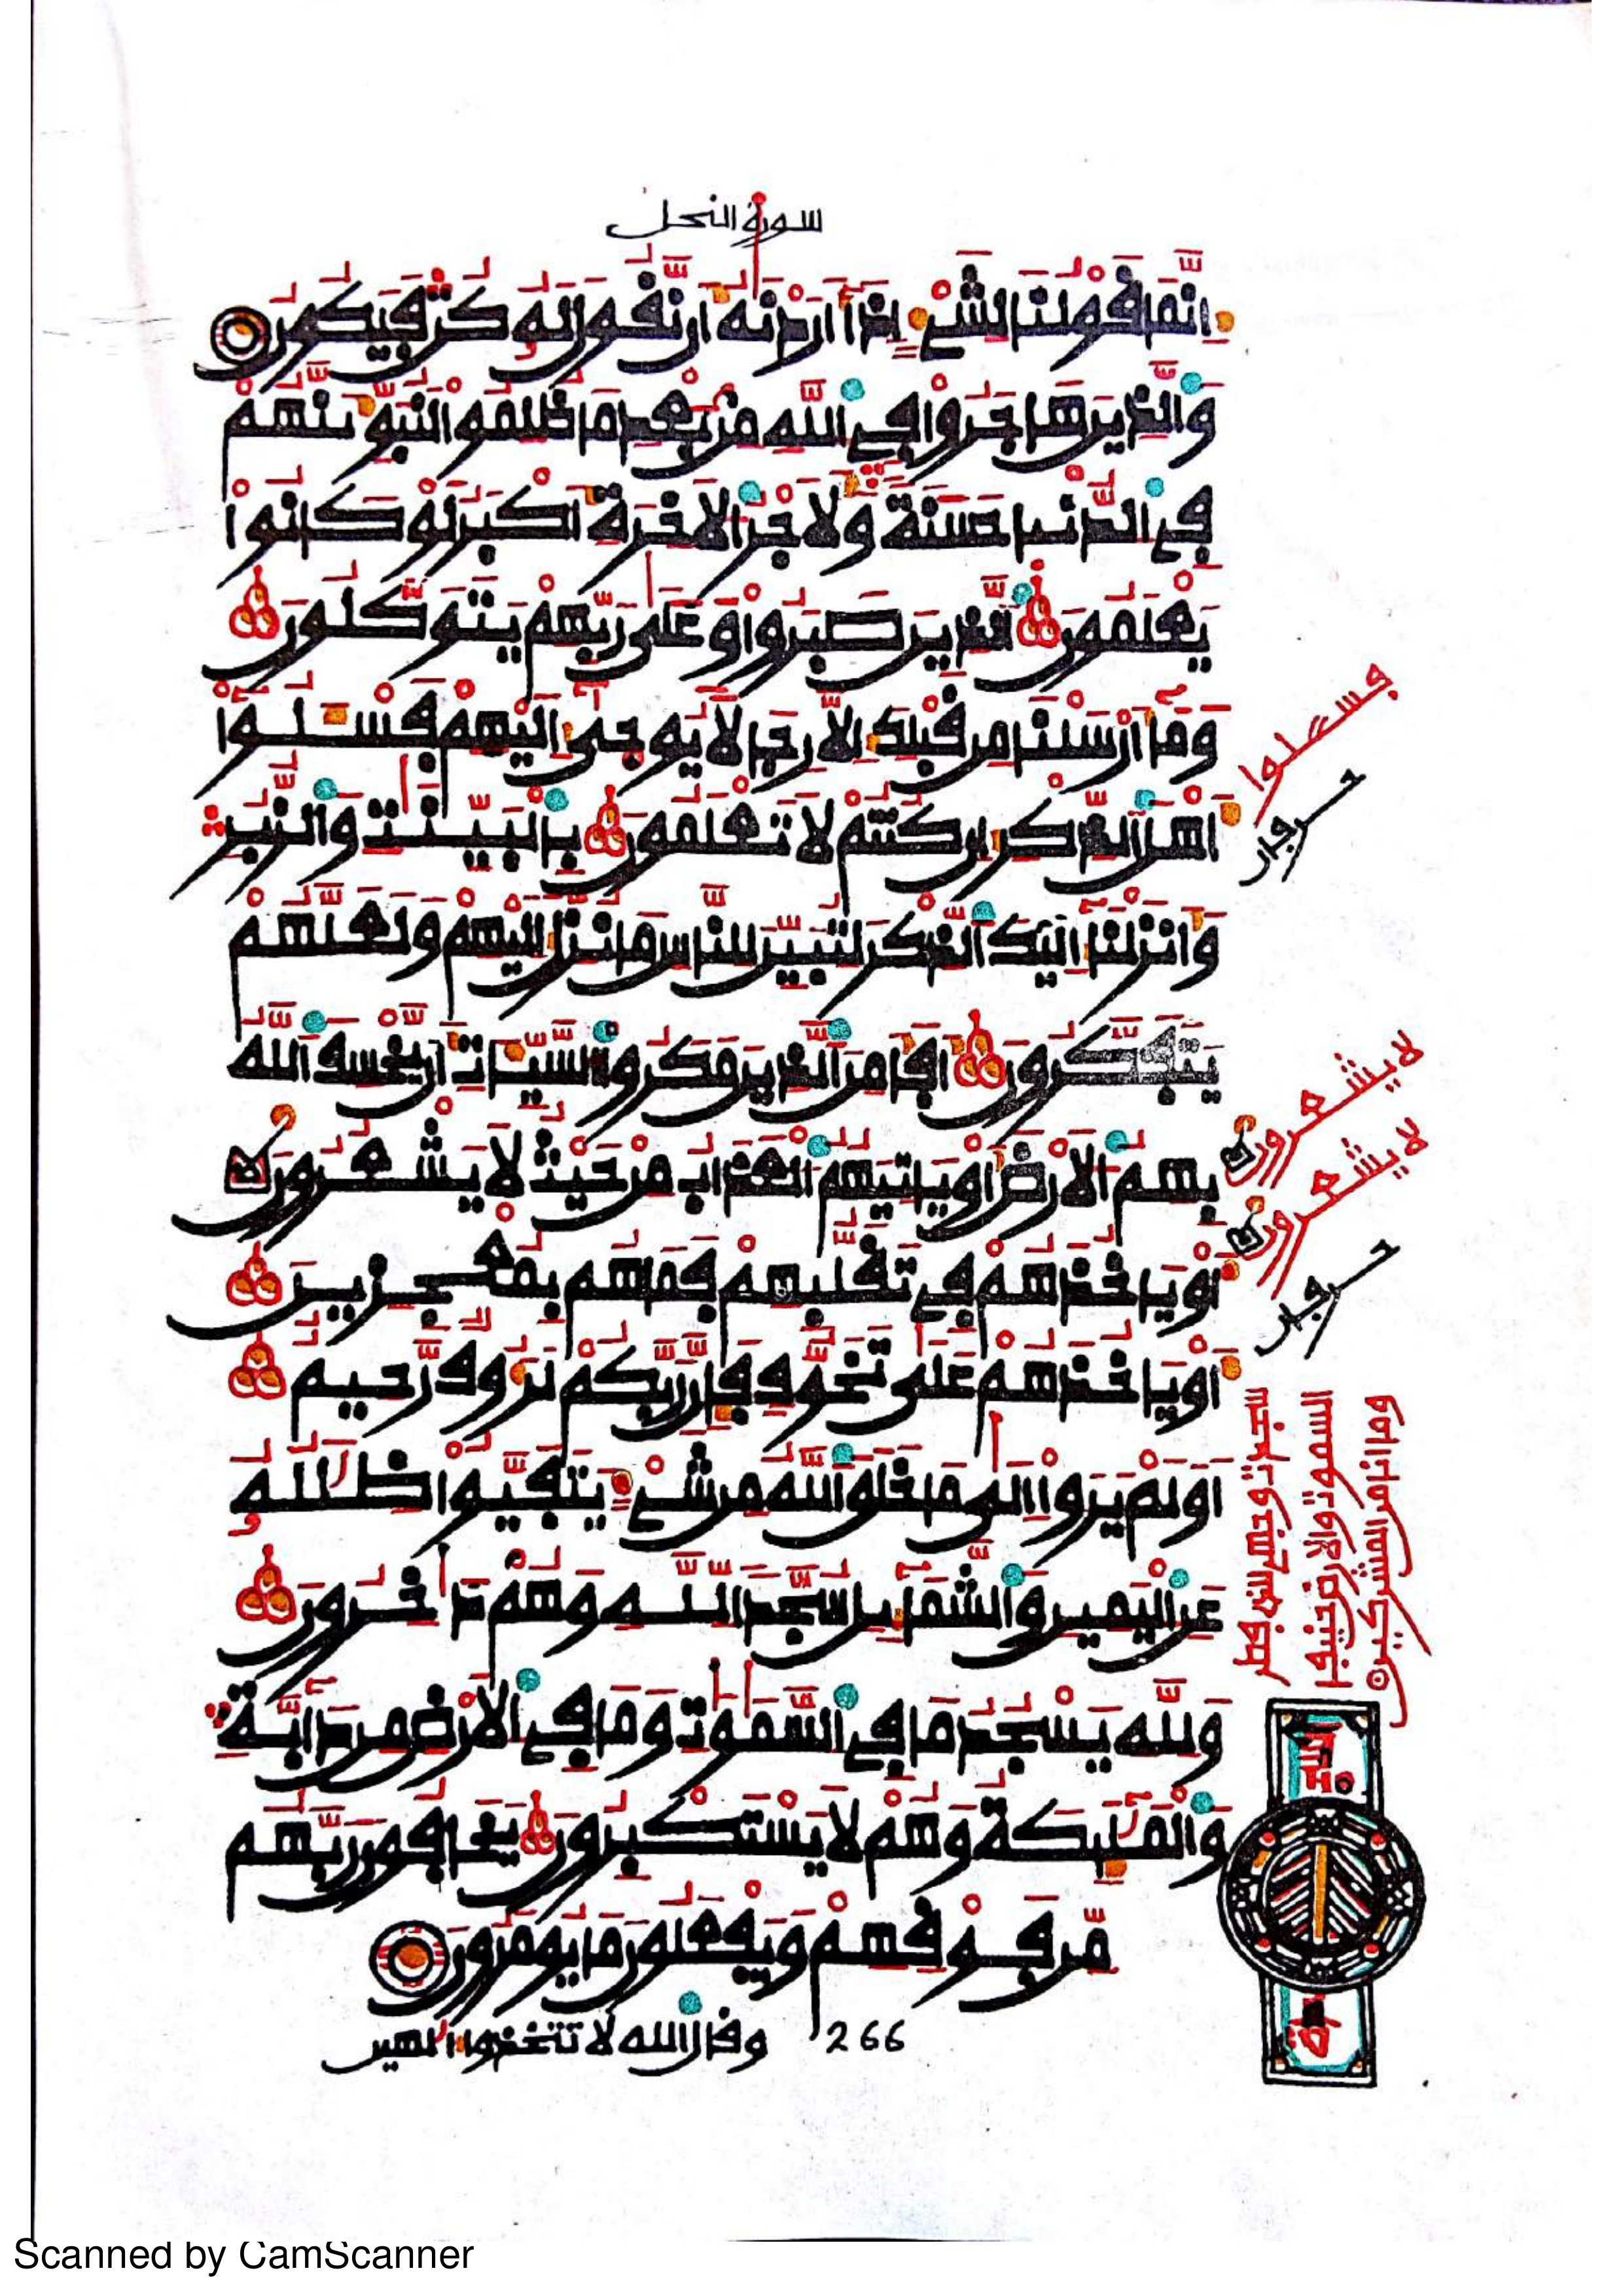 سورة النحل
انما قولنا لشيء اذا اردنه ان نقول له كن فيكون
والذين هاجروا في الله من بعد ما ظلموا لنبوينهم
في الدنيا حسنة ولاجر الاخرة اكبر لو كانوا
يعلمون الذين صبروا وعلى ربهم يتوكلون
وما ارسلنا من قبلك الا رجالا يوحى اليهم فسلوا
اهل الذكر ان كنتم لا تعلمون بالبينت والزبر
وانزلنا اليك الذكر لتبين للناس ما نزل اليهم ولعلهم
يتفكرون افامن الذين مكروا السيات ان يخسف الله
بهم الارض او ياتيهم العذاب من حيث لا يشعرون
او ياخذهم في تقلبهم فما هم بمعجزين
او ياخذهم على تخوف فان ربكم لروف رحيم
اولم يروا الى ما خلق الله من شيء يتفيوا ظلله
عن اليمين والشمايل سجدا لله وهم داخرون
ولله يسجد ما في السموت وما في الارض من دابة
والمليكة وهم لا يستكبرون يخافون ربهم
من فوقهم ويفعلون ما يومرون
وقال الله لا تتخذوا الهين
266
فسئلوا
لا يشعرون
لا يشعرون
سجدة وجهي للذي فطر
السموت والارض حنيفا
وما انا من المشركين
Scanned by CamScanner